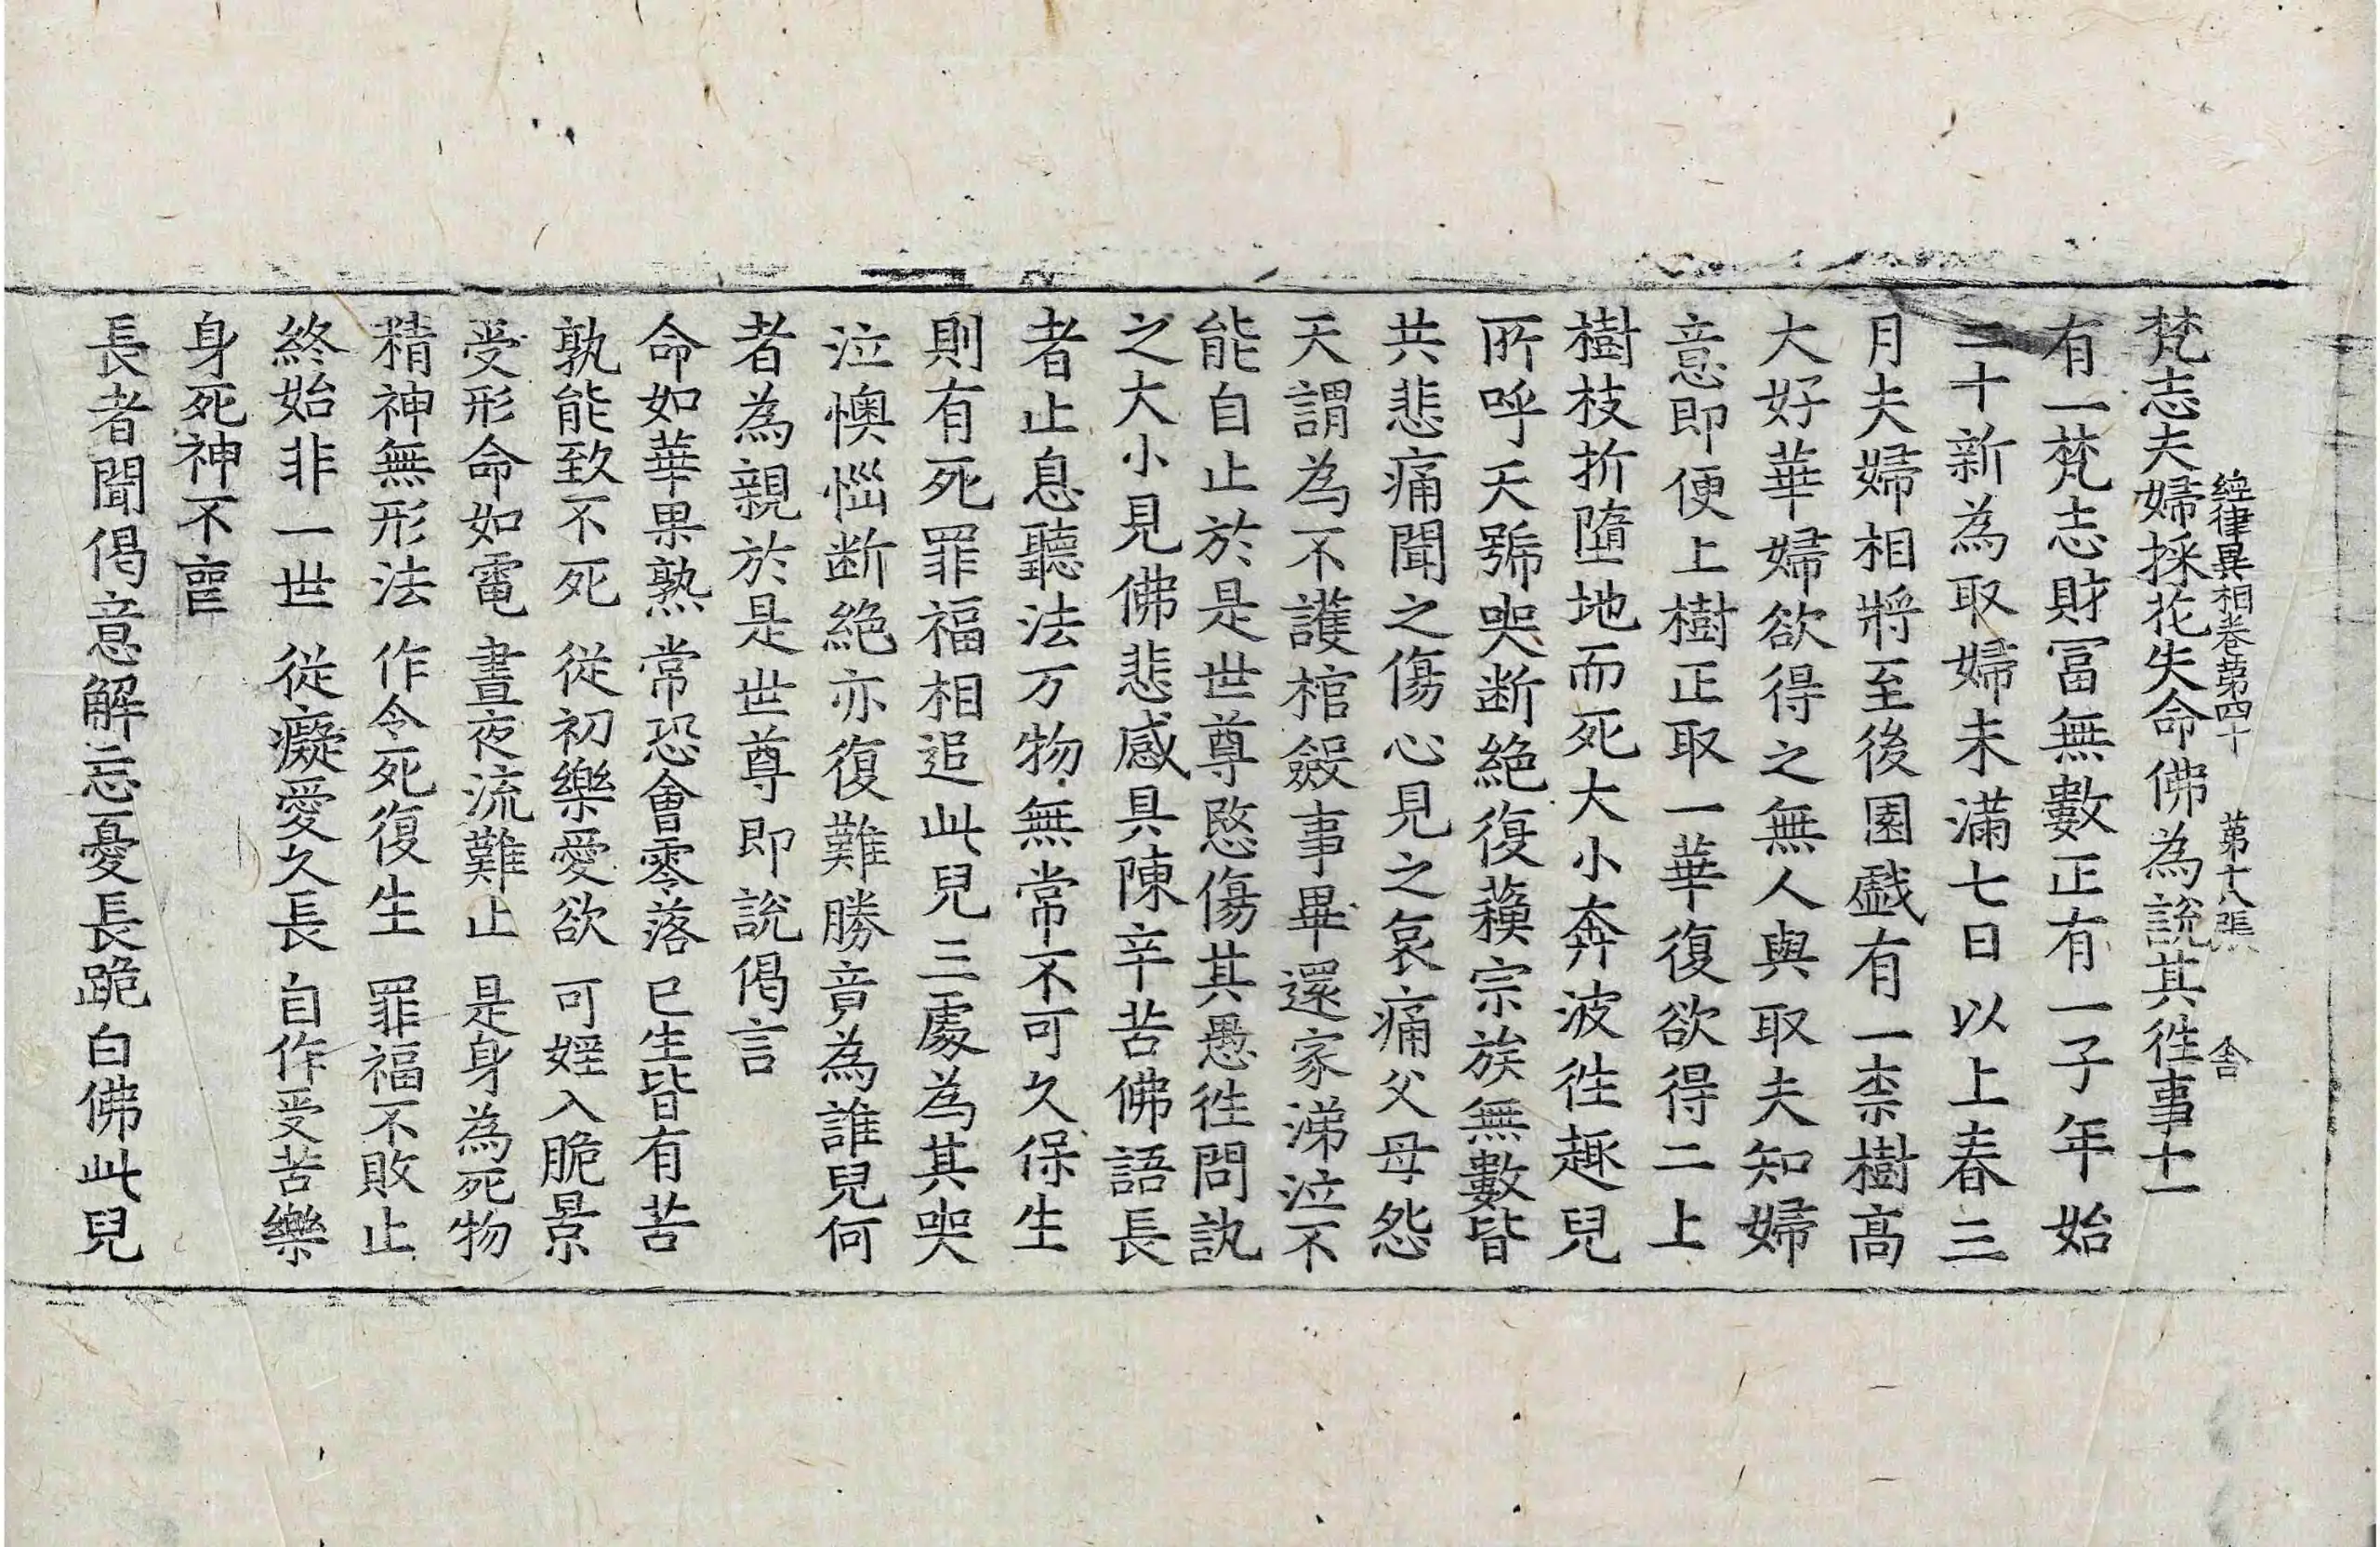 經律異相卷第四十 第十八張 舍
梵志夫婦採花失命佛爲説其徃事十一
有一梵志財冨無數正有一子年始
二十新爲取婦未滿七日以上春三
月夫婦相將至後園戱有一柰樹髙
大好華婦欲得之無人與取夫知婦
意即便上樹正取一華復欲得二上
樹枝折墮地而死大小奔波徃趣兒
所呼天號哭断絶復蘓宗族無數皆
共悲痛聞之傷心見之哀痛父母怨
天謂爲不護棺斂事畢還家涕泣不
能自止於是世尊愍傷其愚徃問訊
之大小見佛悲感具陳辛苦佛語長
者止息聽法万物無常不可久保生
則有死罪福相追此兒三處爲其哭
泣懊惱断絶亦復難勝竟爲誰兒何
者爲親於是世尊即説偈言
命如華果熟 常恐會零落 已生皆有苦
孰能致不死 從初樂愛欲 可婬入脆景
受形命如電 晝夜流難止 是身爲死物
精神無形法 作令死復生 罪福不敗止
終始非一世 從癡愛久長 自作受苦樂
身死神不䘮
長者聞偈意解忘憂長跪白佛此兒